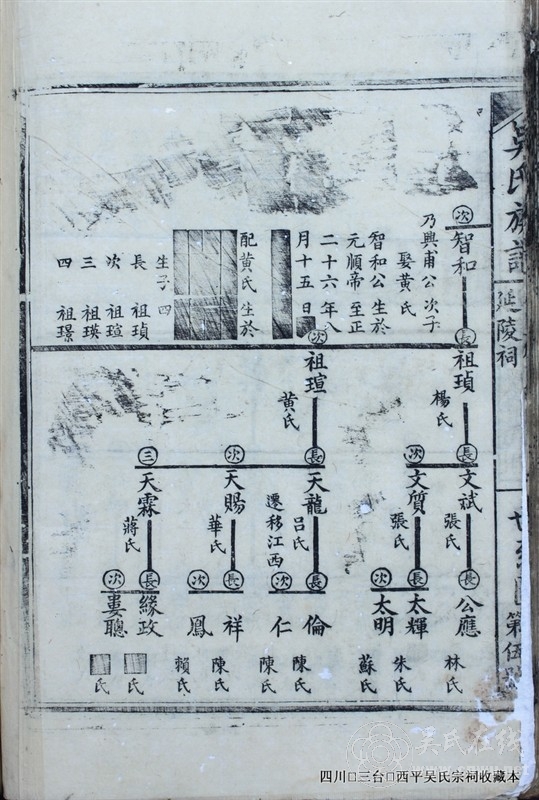 吳氏族譜
延陵祠
第伍號
次 智和
乃興甫公次子
娶黃氏
智和公生於
元順帝至正
二十六年八
月十五日
配黃氏生於
生子四
長 祖瑱
次 祖瑄
三 祖瑛
四 祖璟
長 祖瑱
楊氏
次 祖瑄
黃氏
長 文斌
張氏
次 文質
張氏
長 天龍
呂氏
遷移江西
次 天賜
華氏
三 天霖
蔣氏
長 公應 林氏
長 太輝 朱氏
次 太明 蘇氏
長 倫 陳氏
次 仁 陳氏
長 祥 陳氏
次 鳳 賴氏
長 緣政 氏
次 婁聰 氏
吴氏在线
四川□三台□西平吴氏宗祠收藏本